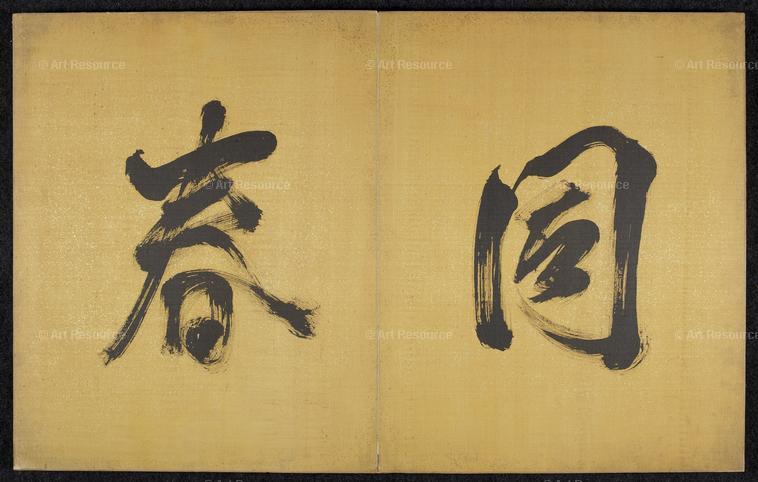 同春
© Art Resource © Art Resource © Art Resource
© Art Resource © Art Resource
© Art Resource © Art Resource © Art Resource